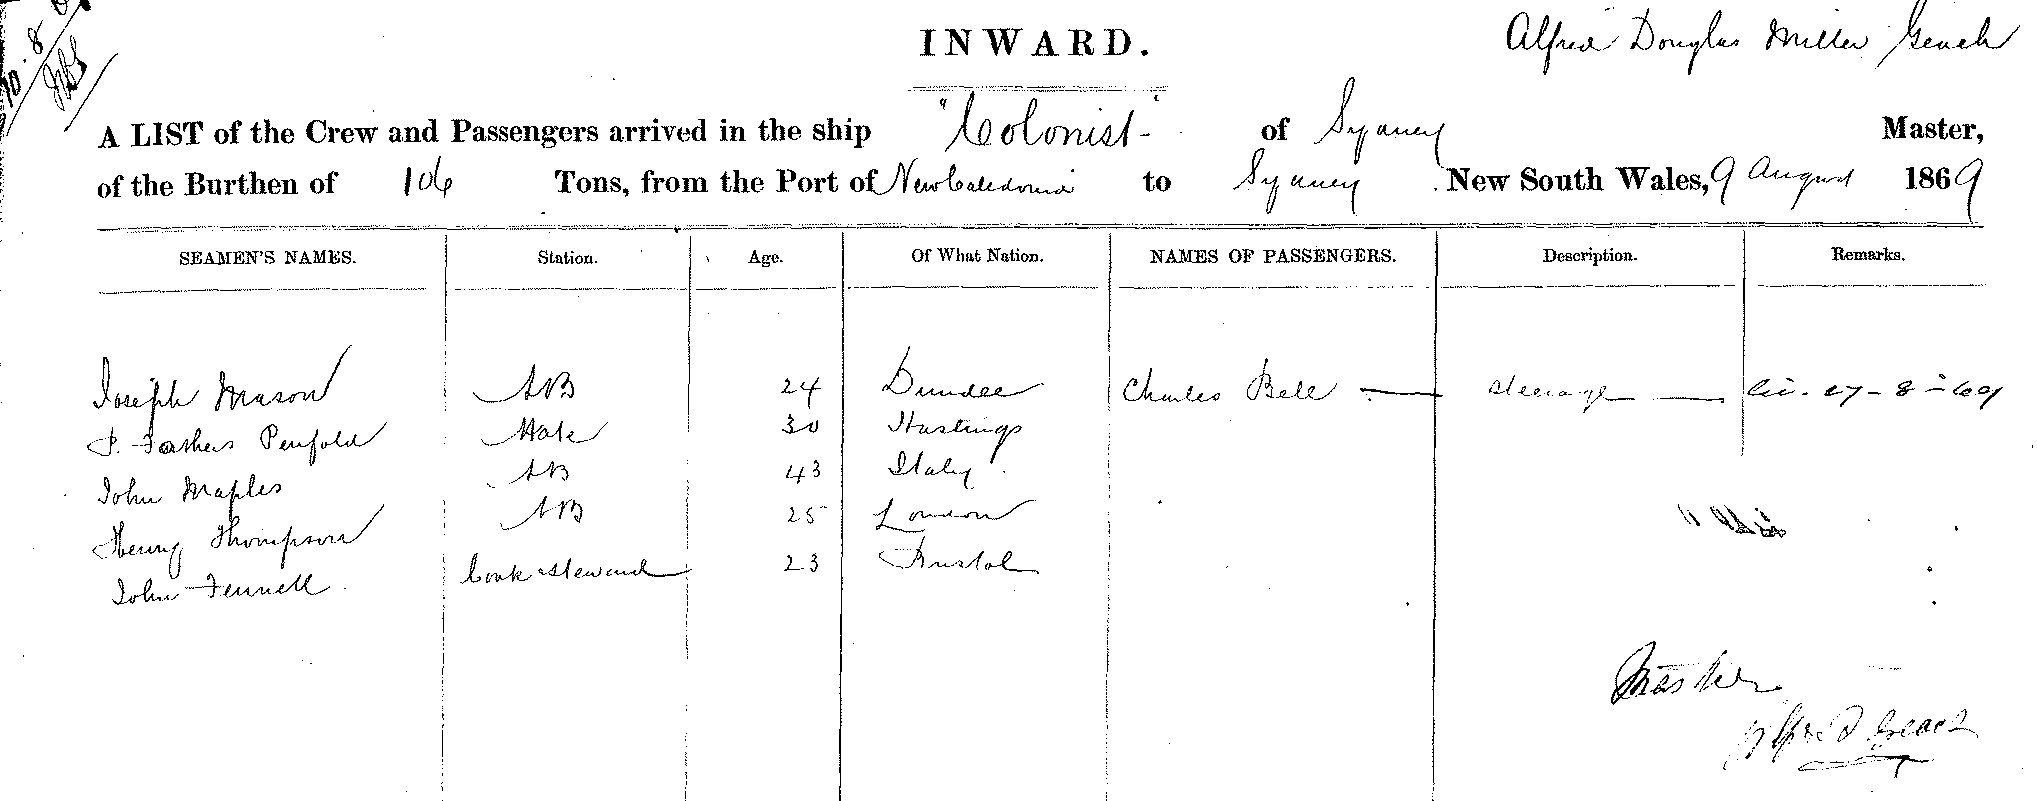 10.8
INWARD.
Alfred Douglas Miller Geach
A LIST of the Crew and Passengers arrived in the ship "Colonist" of Sydney Master,
of the Burthen of 106 Tons, from the Port of New Caledonia to Sydney New South Wales, 9 August 1869
SEAMEN'S NAMES. Station. Age. Of What Nation. NAMES OF PASSENGERS. Description. Remarks.
Joseph Mason AB 24 Dundee Charles Bell steerage 27-8-69
P. Fathers Penfold Mate 30 Hastings
John Maples AB 43 Italy
Henry Thompson AB 25 London
John Fennell Cook & Steward 23 Bristol
Master
Alfred D Geach